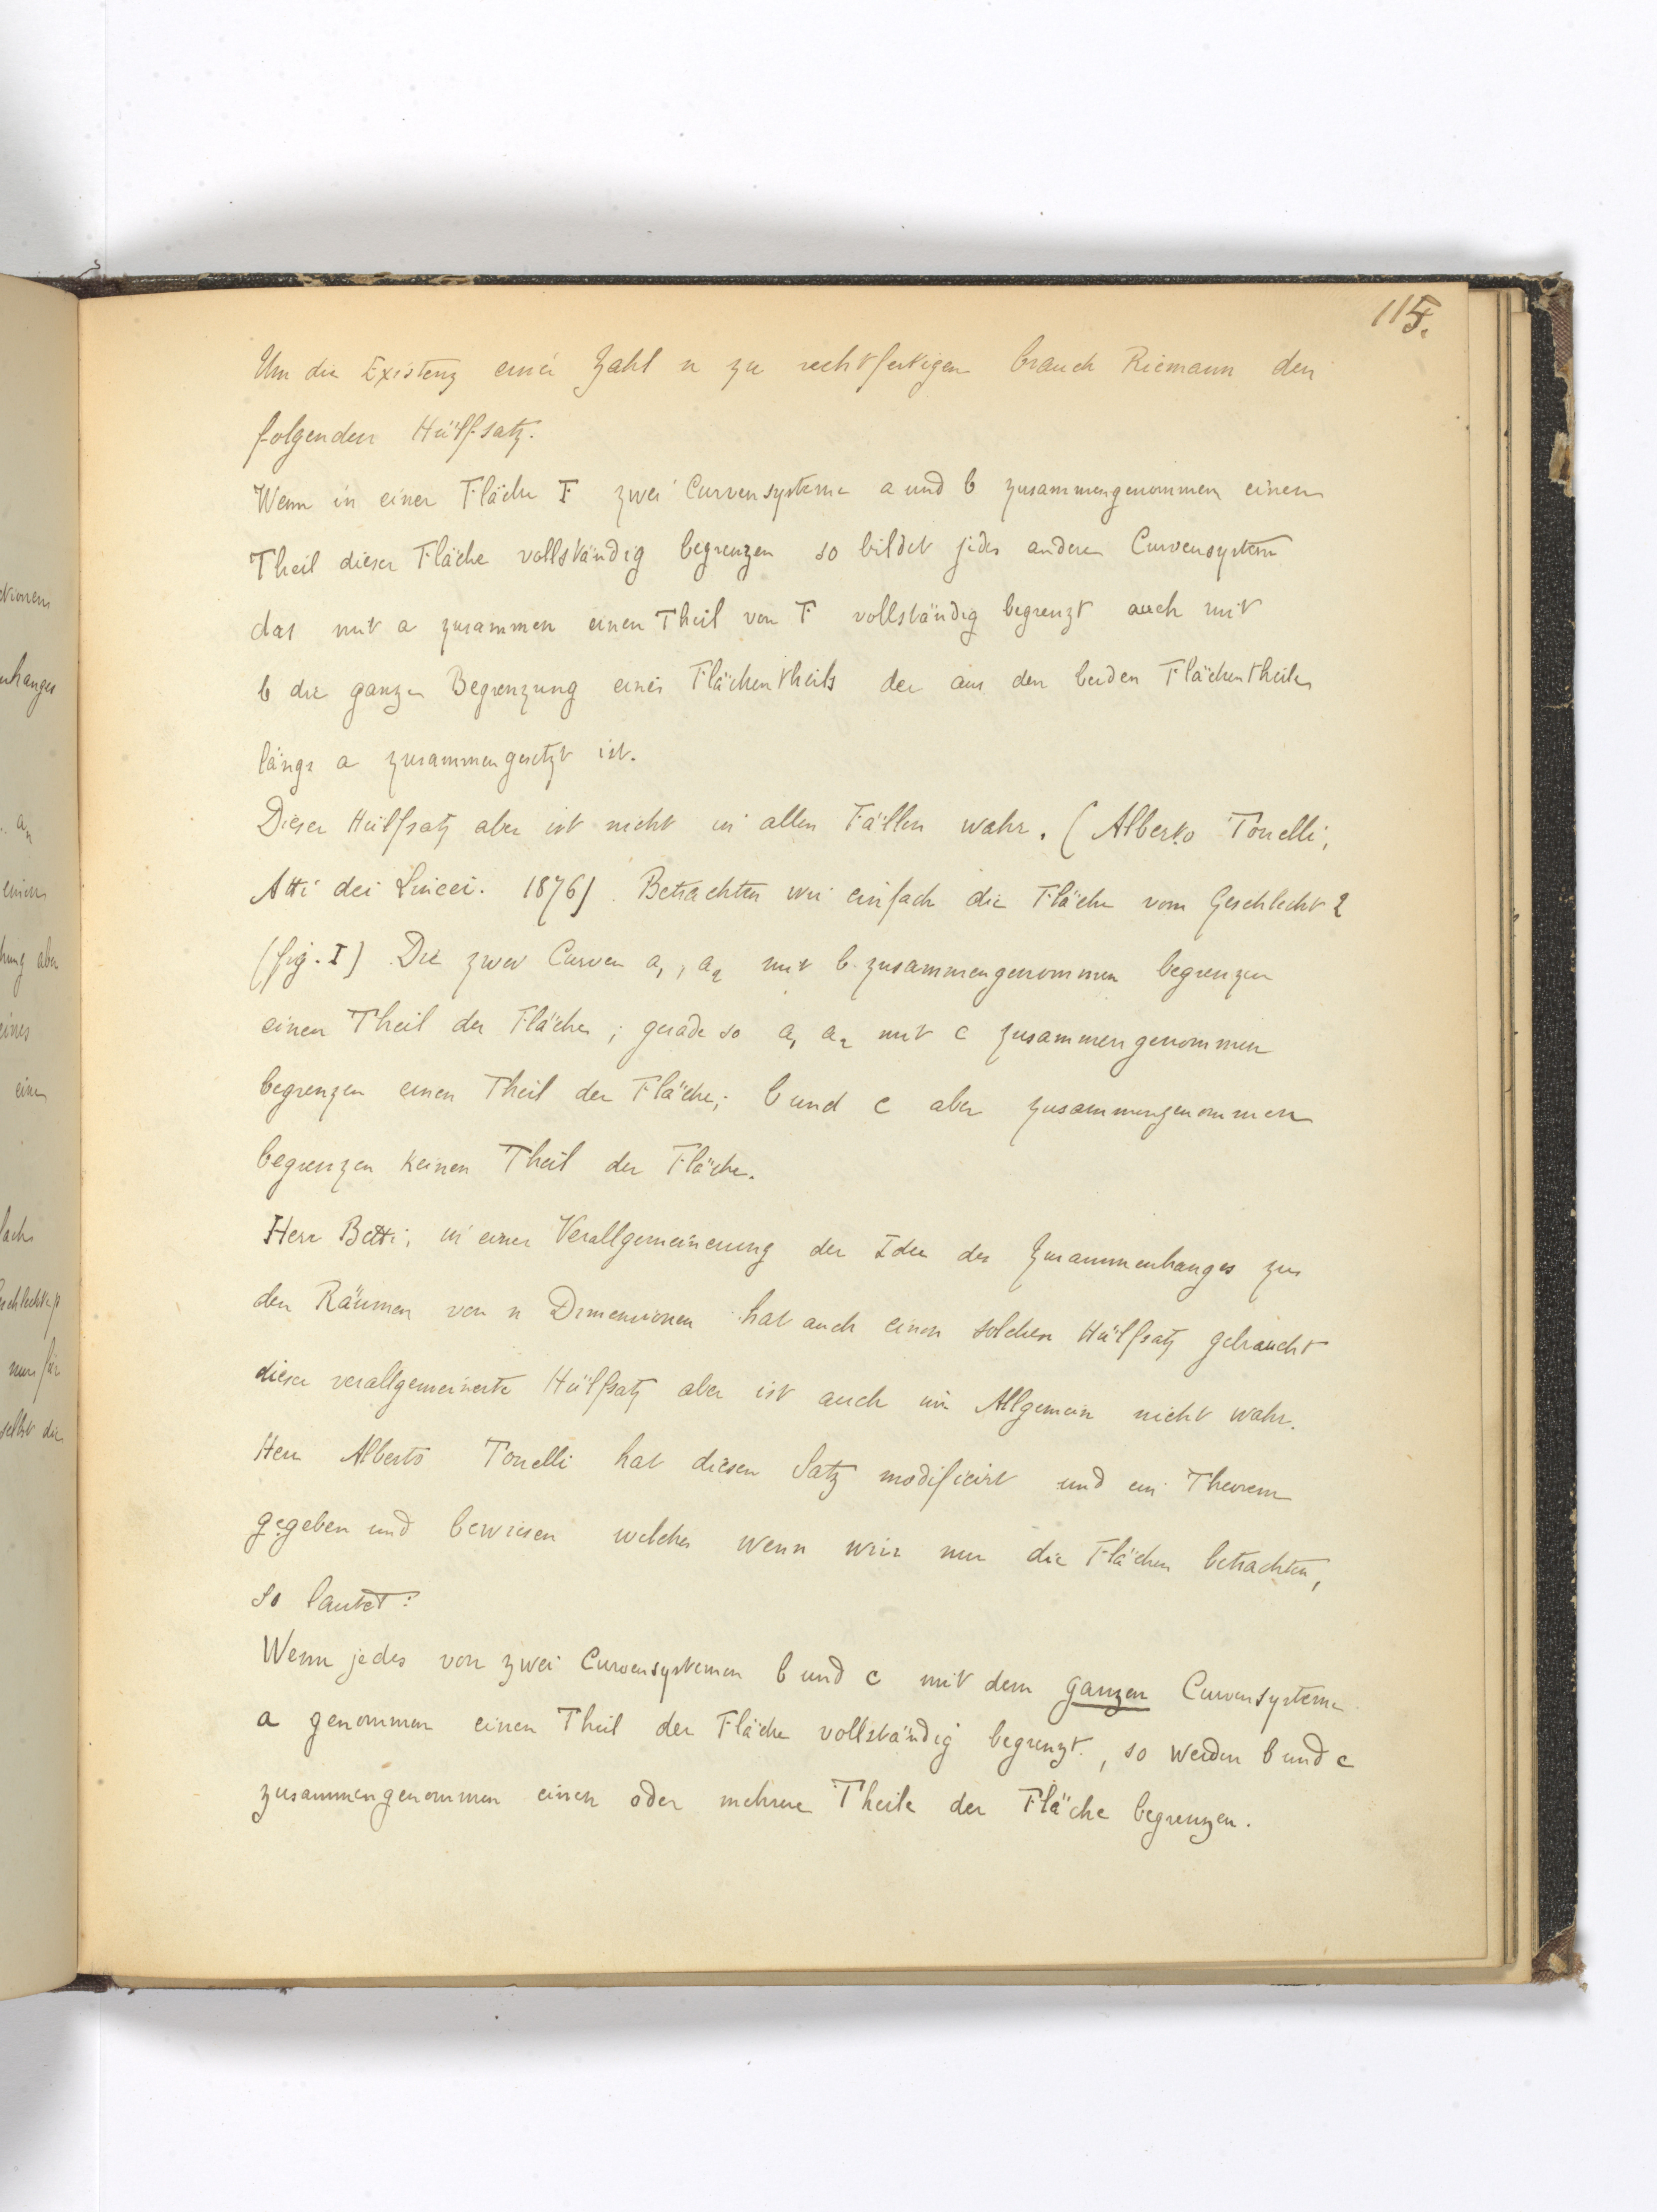 115.
Um die Existenz einer Zahl n zu rechtfertigen brauch Riemann den
folgenden Hülfsatz.
Wenn in einer Fläche F zwei Curvensysteme a und b zusammengenommen einen
Theil dieser Fläche vollständig begrenzen so bildet jedes andere Curvensystem
das mit a zusammen einen Theil von F vollständig begrenzt auch mit
b die ganzen Begrenzung eines Flächentheils der aus den beiden Flächentheilen
längs a zusammengesetzt ist.
Dieser Hülfsatz aber ist nicht in allen Fällen wahr. (Alberto Tonelli,
Atti dei Lincei. 1876). Betrachten wir einfach die Fläche vom Geschlecht 2
(fig. I) Die zwei Curven a₁, a₂ mit b zusammengenommen begrenzen
einen Theil der Fläche; gerade so a₁ a₂ mit c zusammengenommen
begrenzen einen Theil der Fläche; b und c aber zusammengenommen
begrenzen keinen Theil der Fläche.
Herr Betti, in einer Verallgemeinerung der Idee des Zusammenhanges zu
den Räumen von n Dimensionen hat auch einen solchen Hülfsatz gebraucht
dieser verallgemeinerte Hülfsatz aber ist auch im Allgemein nicht wahr.
Herr Alberto Tonelli hat diesen Satz modificirt und ein Theorem
gegeben und bewiesen welches wenn wir nur die Flächen betrachten,
so lautet:
Wenn jedes von zwei Curvensystemen b und c mit dem ganzen Curvensysteme
a genommen einen Theil der Fläche vollständig begrenzt, so werden b und c
zusammengenommen einen oder mehrere Theile der Fläche begrenzen.